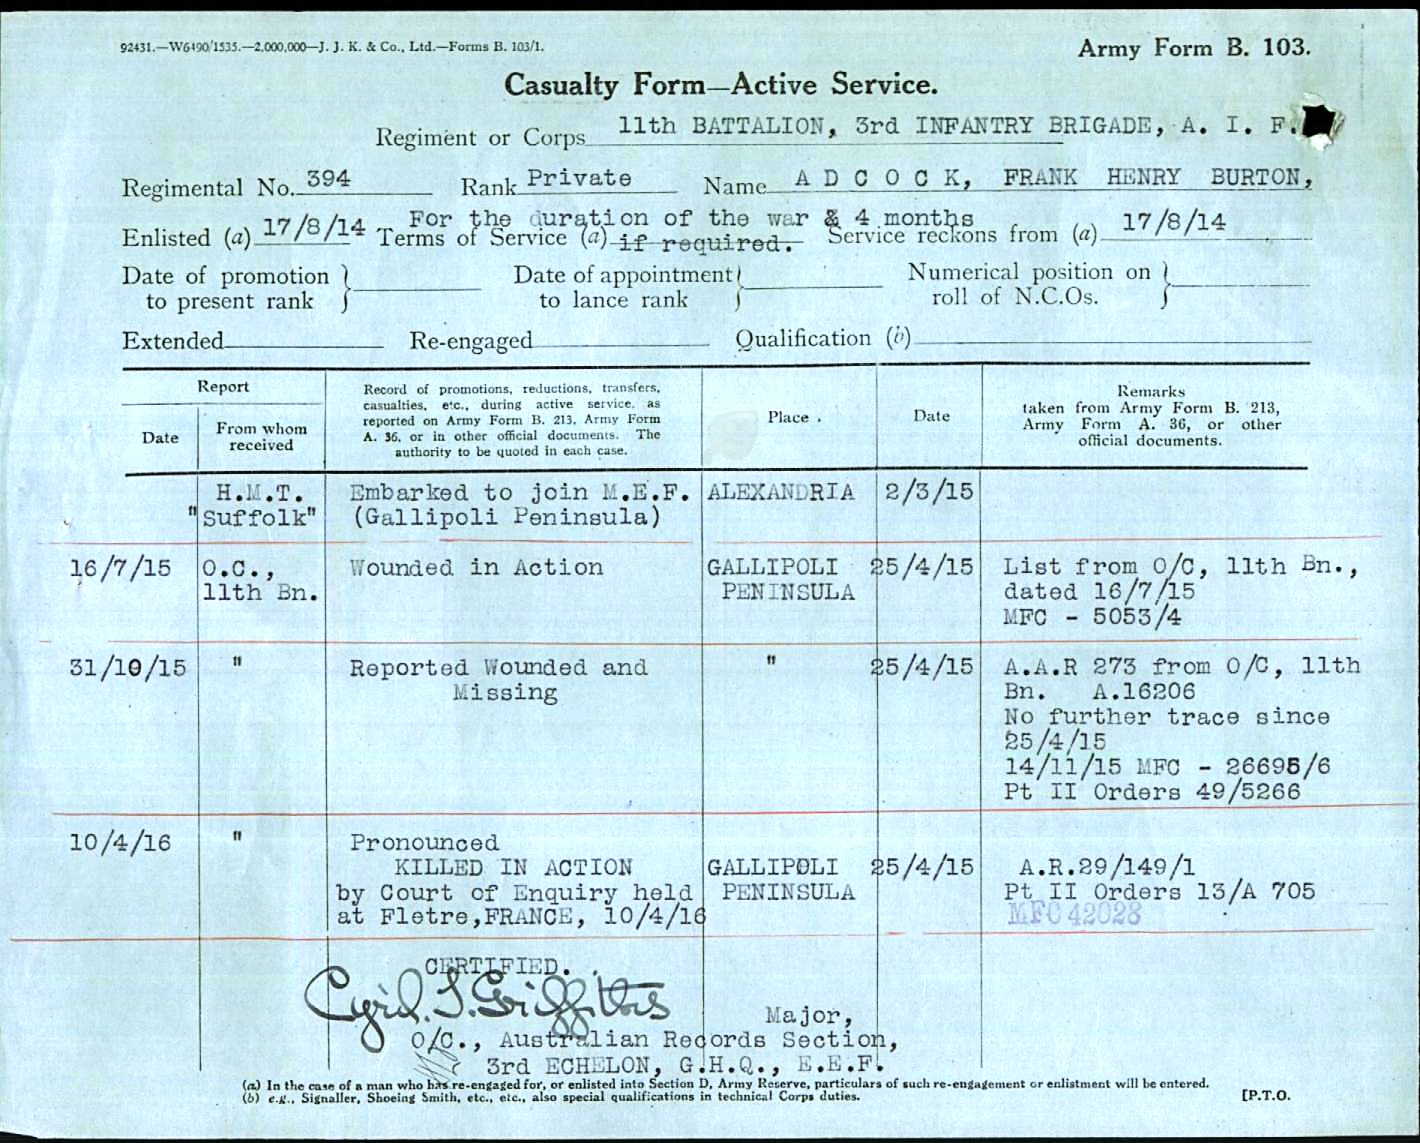 92431.—W6490/1535.—2,000,000—J. J. K. & Co., Ltd.—Forms B. 103/1.
Army Form B. 103.
Casualty Form—Active Service.
Regiment or Corps 11th BATTALION, 3rd INFANTRY BRIGADE, A. I. F.
Regimental No. 394 Rank Private Name A D C O C K, FRANK HENRY BURTON,
Enlisted (a) 17/8/14 Terms of Service (a) For the duration of the war & 4 months if required. Service reckons from (a) 17/8/14
Date of promotion to present rank } Date of appointment to lance rank } Numerical position on roll of N.C.Os. }
Extended Re-engaged Qualification (b)
Report
Date
From whom received
Record of promotions, reductions, transfers,
casualties, etc., during active service, as
reported on Army Form B. 213, Army Form
A. 36, or in other official documents. The
authority to be quoted in each case.
Place.
Date
Remarks
taken from Army Form B. 213,
Army Form A. 36, or other
official documents.
H.M.T. Embarked to join M.E.F. ALEXANDRIA 2/3/15
"Suffolk" (Gallipoli Peninsula)
16/7/15 O.C., Wounded in Action GALLIPOLI 25/4/15 List from O/C, 11th Bn.,
11th Bn. PENINSULA dated 16/7/15
MFC - 5053/4
31/10/15 " Reported Wounded and " 25/4/15 A.A.R 273 from O/C, 11th
Missing Bn. A.16206
No further trace since
25/4/15
14/11/15 MFC - 26695/6
Pt II Orders 49/5266
10/4/16 " Pronounced
KILLED IN ACTION GALLIPOLI 25/4/15 A.R.29/149/1
by Court of Enquiry held PENINSULA Pt II Orders 13/A 705
at Fletre,FRANCE, 10/4/16 MFC 42028
CERTIFIED.
Cyril. T. Griffiths
Major,
O/C., Australian Records Section,
3rd ECHELON, G.H.Q., E.E.F.
(a) In the case of a man who has re-engaged for, or enlisted into Section D, Army Reserve, particulars of such re-engagement or enlistment will be entered.
(b) e.g., Signaller, Shoeing Smith, etc., etc., also special qualifications in technical Corps duties.
[P.T.O.